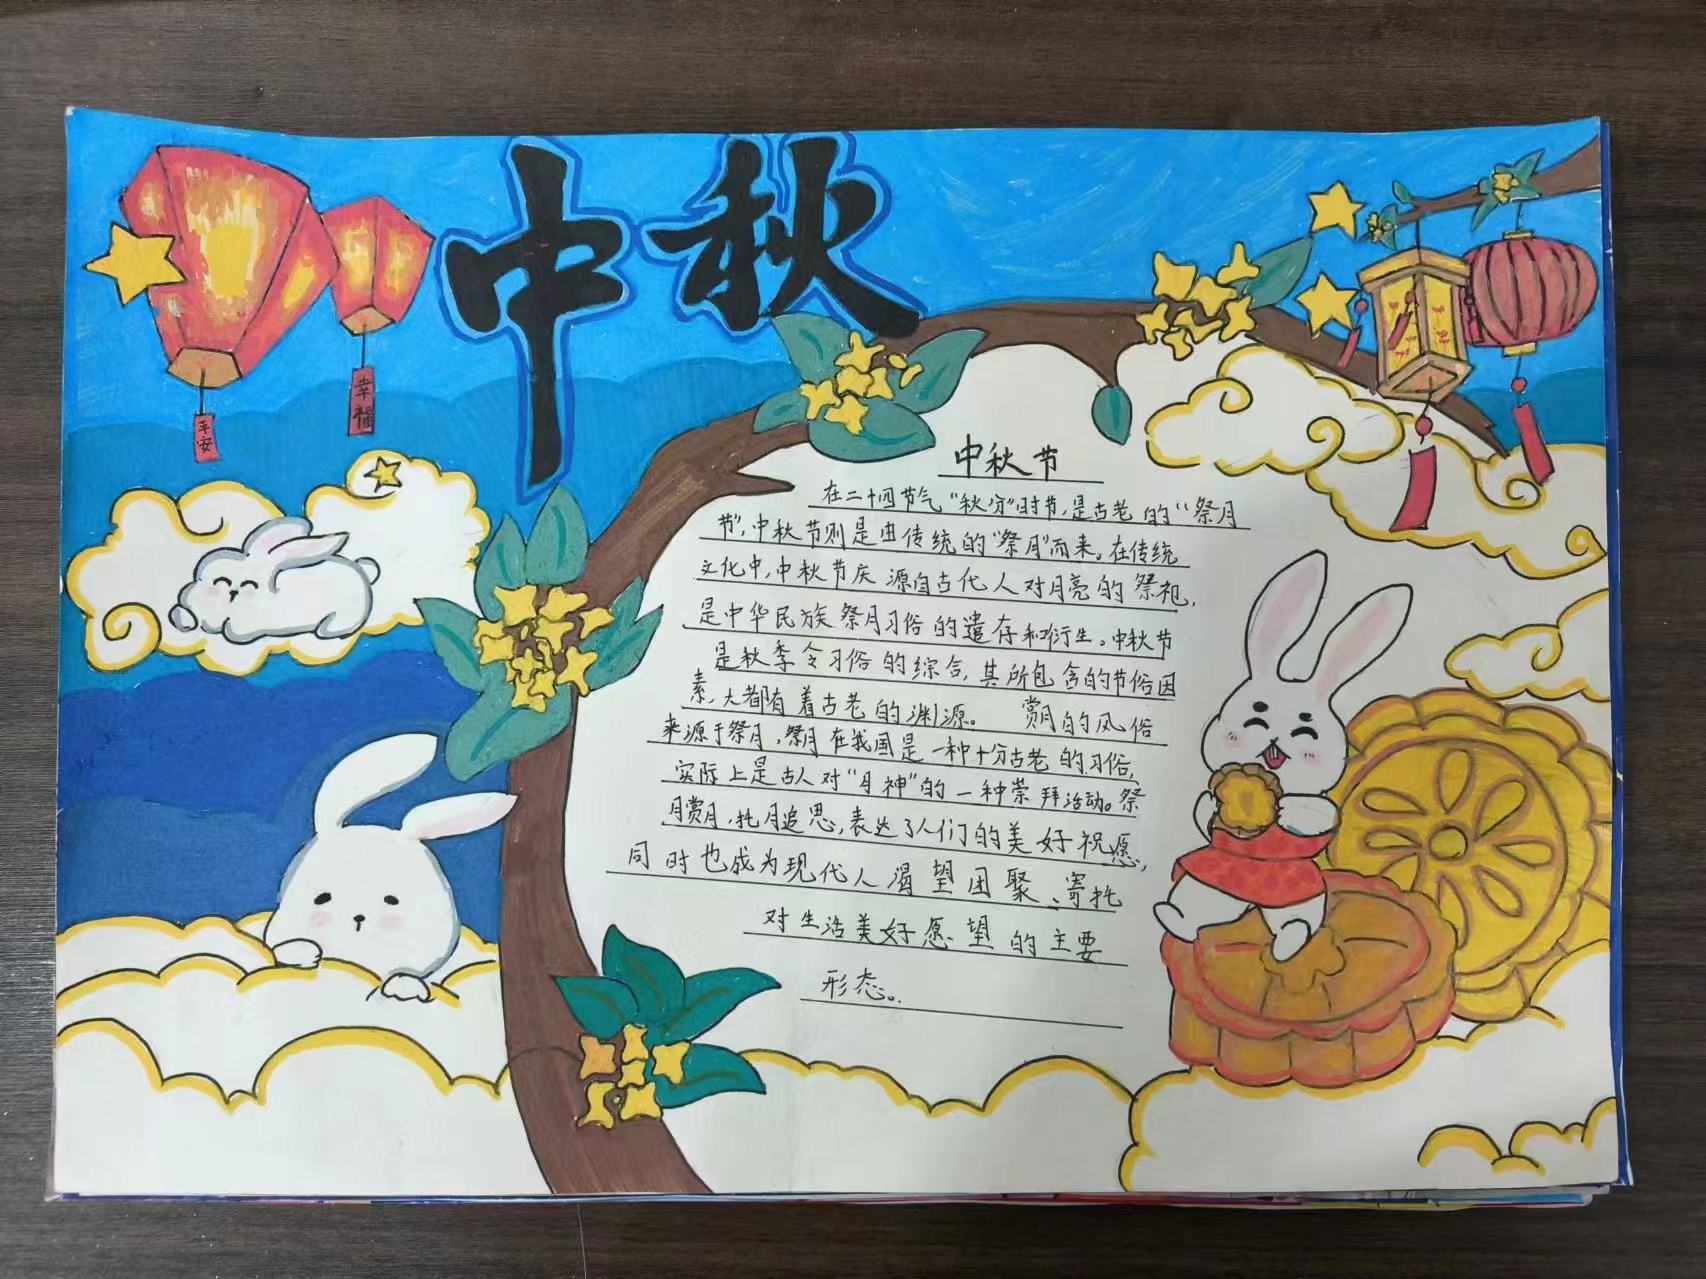 中秋
平安
幸福
中秋节
在二十四节气“秋分”时节,是古老的“祭月
节”,中秋节则是由传统的“祭月”而来。在传统
文化中,中秋节庆 源自古代人对月亮的祭祀,
是中华民族祭月习俗的遗存和衍生。中秋节
是秋季令习俗的综合,其所包含的节俗因
素,大都有着古老的渊源。 赏月的风俗
来源于祭月,祭月在我国是一种十分古老的习俗,
实际上是古人对“月神”的一种崇拜活动。祭
月赏月,托月追思,表达了人们的美好祝愿,
同时也成为现代人渴望团聚、寄托
对生活美好愿望的主要
形态。